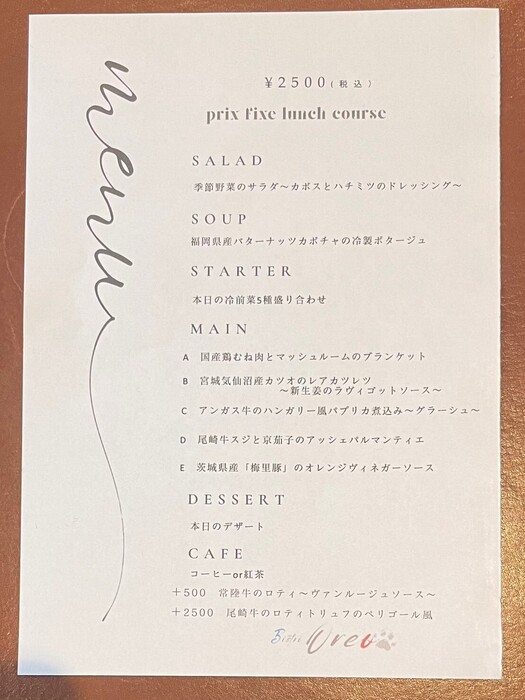 menu
¥2500(税込)
prix fixe lunch course
SALAD
季節野菜のサラダ〜カボスとハチミツのドレッシング〜
SOUP
福岡県産バターナッツカボチャの冷製ポタージュ
STARTER
本日の冷前菜5種盛り合わせ
MAIN
A 国産鶏むね肉とマッシュルームのブランケット
B 宮城気仙沼産カツオのレアカツレツ
〜新生姜のラヴィゴットソース〜
C アンガス牛のハンガリー風パプリカ煮込み〜グラーシュ〜
D 尾崎牛スジと京茄子のアッシェパルマンティエ
E 茨城県産「梅里豚」のオレンジヴィネガーソース
DESSERT
本日のデザート
CAFE
コーヒーor紅茶
+500 常陸牛のロティ〜ヴァンルージュソース〜
+2500 尾崎牛のロティトリュフのペリゴール風